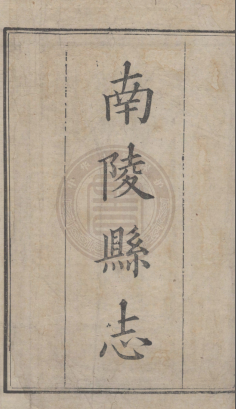 南陵縣志